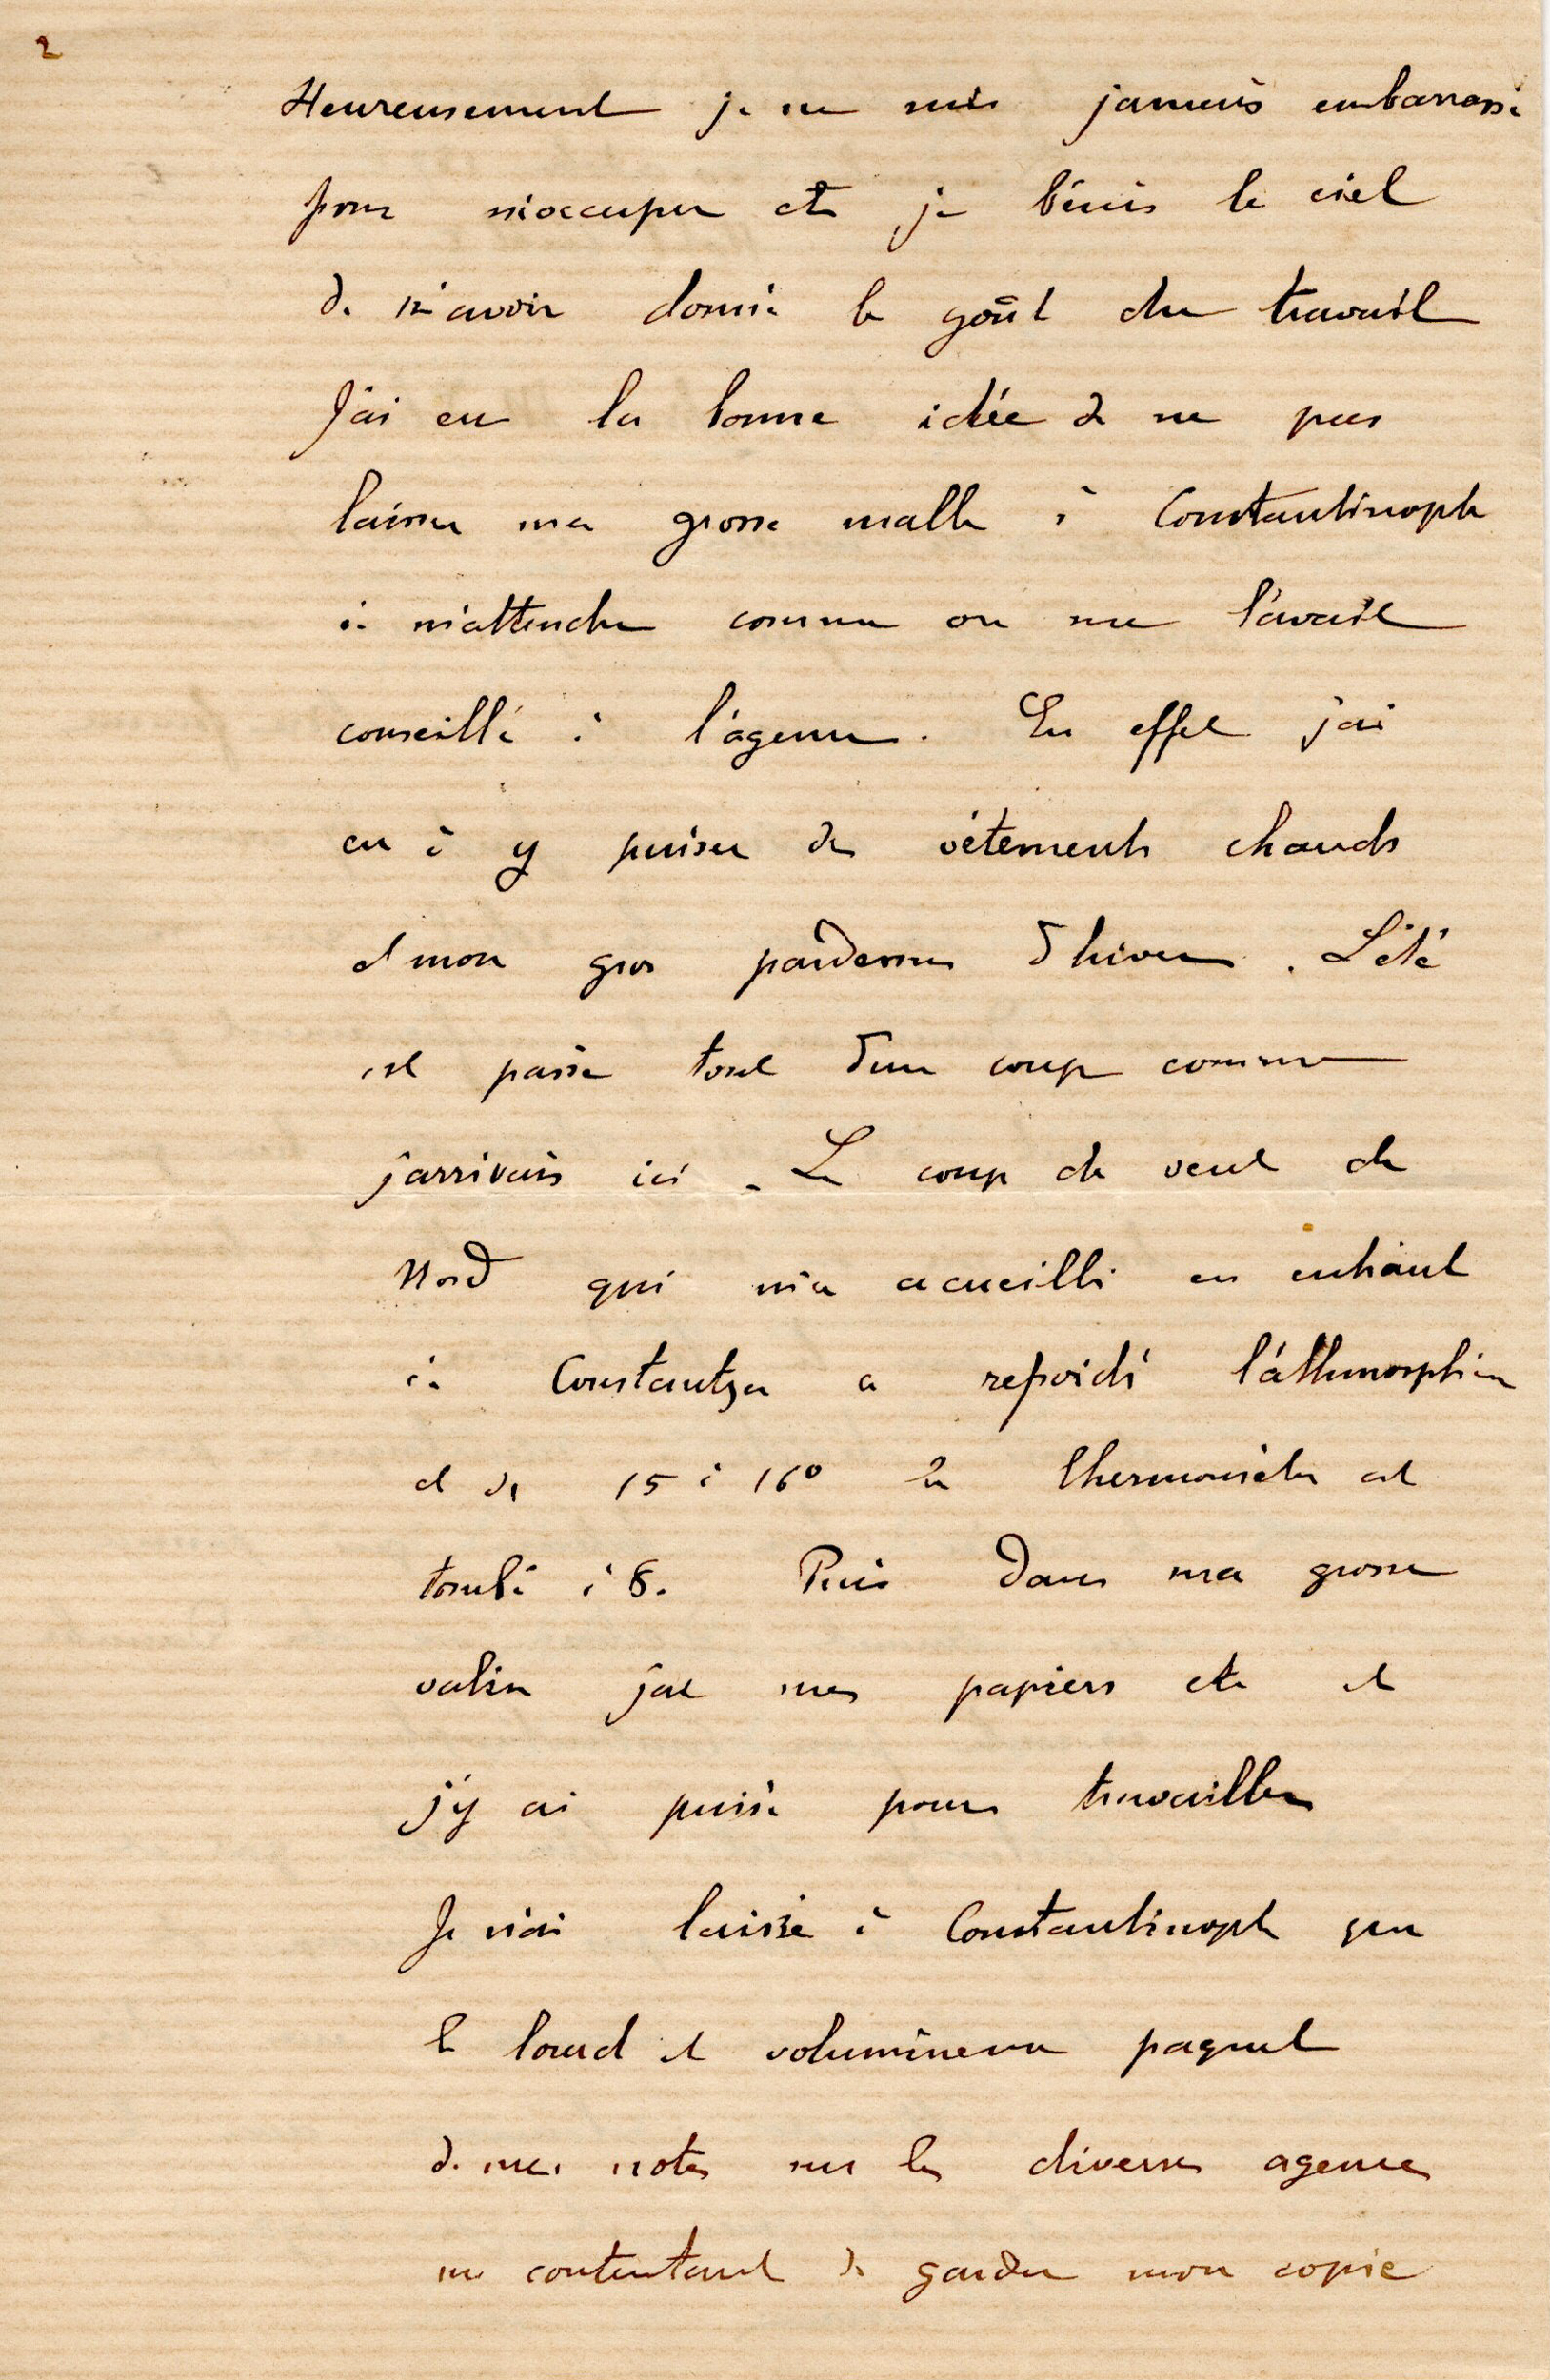 2
Heureusement je ne suis jamais embarassé
pour m'occuper et je bénis le ciel
de m'avoir donné le goût du travail
J'ai eu la bonne idée de ne pas
laisser ma grosse malle à Constantinople
à m'attendre comme on me l'avait
conseillé à l'agence. En effet j'ai
eu à y puiser des vêtements chauds
et mon gros pardessus d'hiver. L'été
est passé tout d'un coup comme
j'arrivais ici. Le coup de vent de
Nord qui m'a acueilli en entrant
à Constantza a refroidi l'athmosphère
et de 15 à 16° le thermomètre est
tombé à 8. Puis dans ma grosse
valise j'ai mes papiers etc et
j'y ai puisé pour travailler
Je n'ai laissé à Constantinople que
le lourd et volumineux paquet
de mes notes sur les diverses agences
me contentant de garder mon copie